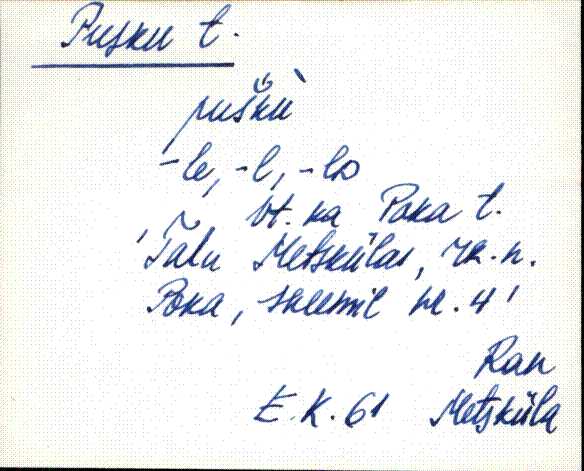 Pusku t.
pušku`
-le, -l, -lD
Vt. ka Poka t.
'Talu Metskülas, rk.-n.
Poka, skeemil nr. 4'
Ran
E.K. 61 Metsküla